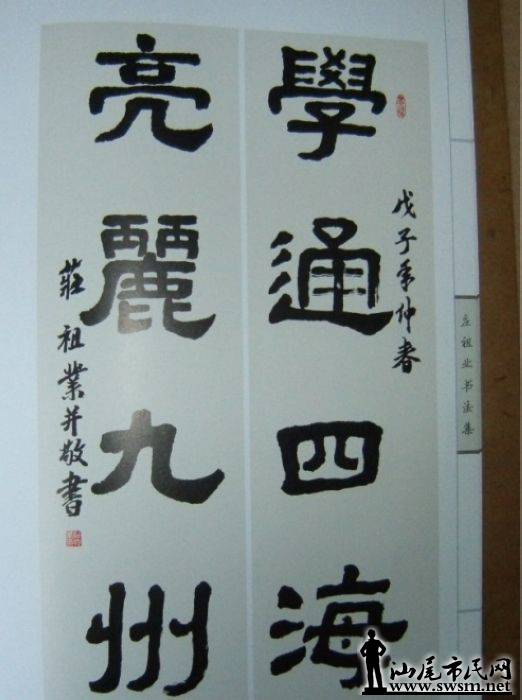 學通四海
戊子年仲春
亮麗九州
莊祖業并敬書
庄祖业书法集
汕尾市民网
www.swsm.net